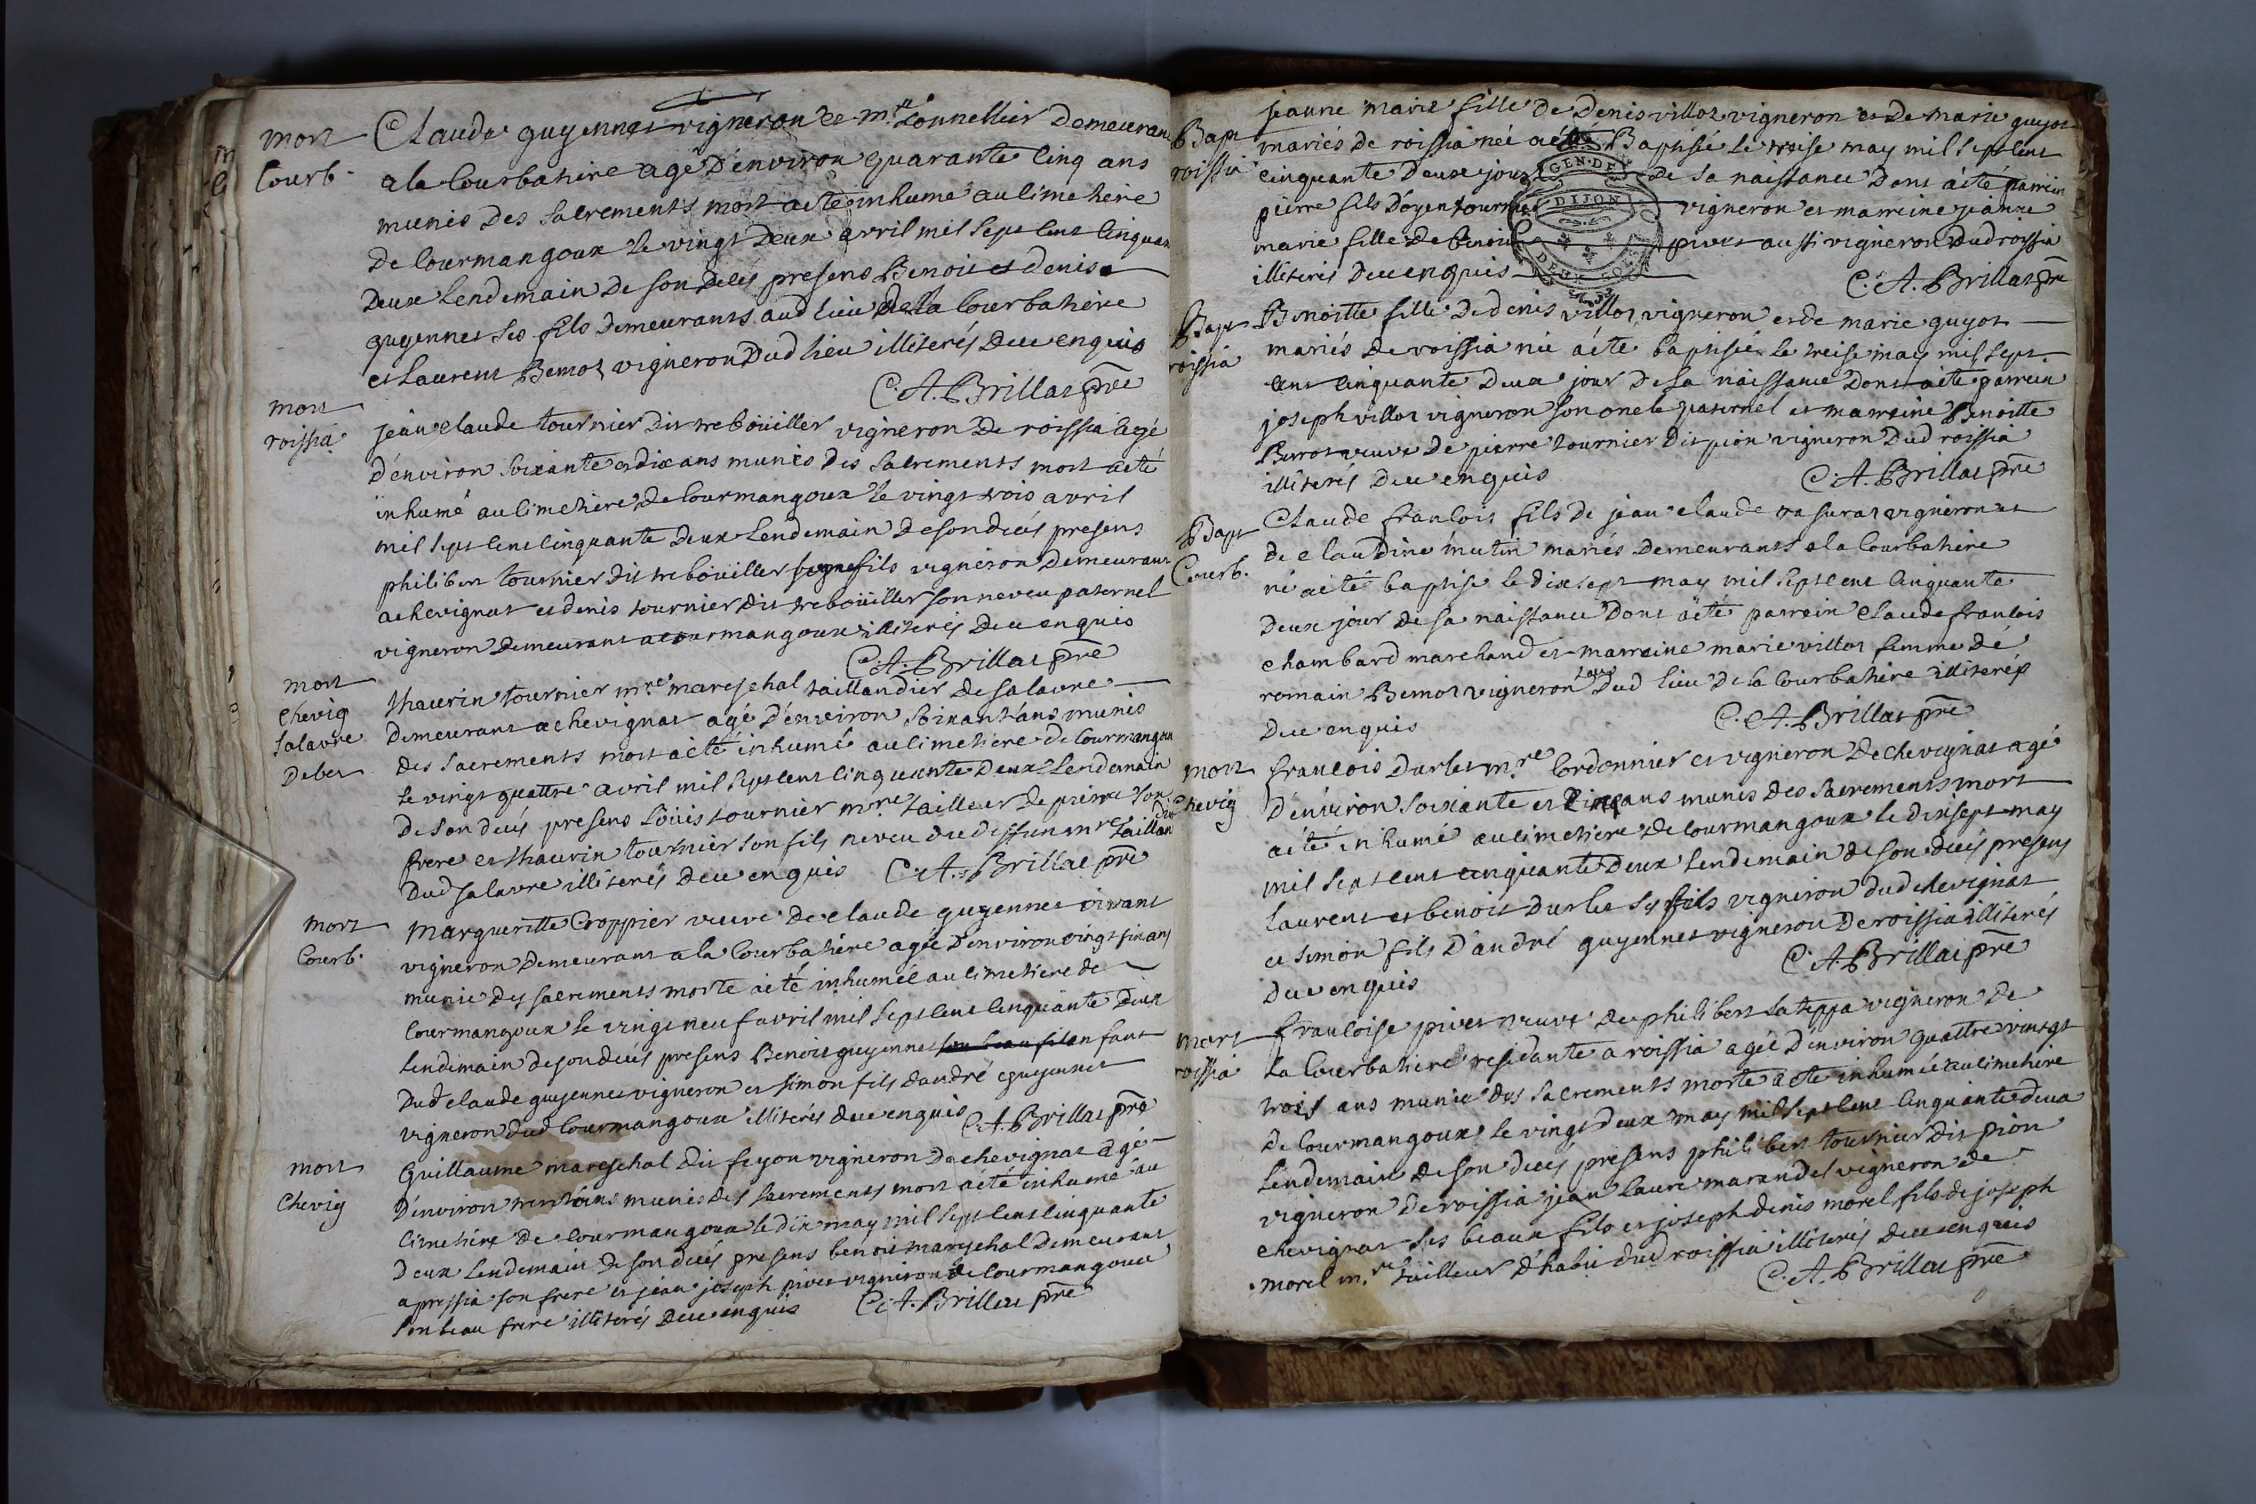 mort
Courb.
Claude guyennet vigneron et m.re tonnellier demeurant
a la Courbatiere agé d'environ quarante cinq ans
munis des sacrements mort a eté inhumé au cimetiere
de Courmangoux le vingt deux avril mil sept cent cinquante
deux lendemain de son deces presens Benoit et denis
guyennet ses fils demeurants aud lieu de la Courbatiere
et Laurent Bemot vigneron dud lieu illiterés de ce enquis
C. A. Brillat pre
mort
roissia
jean claude tournier dit trebouiller vigneron de roissia agé
d'environ soixante et dix ans munis des sacrements mort a eté
inhumé au cimetiere de Courmangoux le vingt trois avril
mil sept cent cinquante deux lendemain de son decés presens
philibert tournier dit trebouiller fils vigneron demeurant
a chevignat et denis tournier dit trebouiller son neveu paternel
vigneron demeurant a courmangoux illiterés de ce enquis
C. A. Brillat pre
mort
chevig
salavre
debet
thaurin tournier m.re mareschal taillandier de salavre
demeurant a chevignat agé d'environ soixant'ans munis
des sacrements mort a eté inhumé au cimetiere de Courmangoux
le vingt quattre avril mil sept cent cinquante deux lendemain
de son decés presens Loüis tournier m.re tailleur de pierre son
frere et thaurin tournier son fils neveu dud deffun m.re taillan
dier
dud salavre illiterés de ce enquis C. A. Brillat pre
mort
Courb.
Margueritte Croppier veuve de claude guyennet vivant
vigneron demeurant a la Courbatiere agée d'environ vingt six ans
munie des sacrements morte a eté inhumée au cimetiere de
Courmangoux le vingt neuf avril mil sept cent cinquante deux
lendemain de son decés presens Benoit guyennet son beau fils enfant
dud claude guyennet vigneron et simon fils d'andré guyennet
vigneron dud Courmangoux illiterés de ce enquis
C. A. Brillat pre
mort
Chevig
Guillaume mareschal dit feyou vigneron de chevignat agé
d'environ trent'ans munis des sacrements mort a eté inhumé au
cimetiere de Courmangoux le dix may mil sept cent cinquante
deux lendemain de son decés presens benoit mareschal demeurant
a pressia son frere et jean joseph pivet vigneron de Courmangoux
son beau frere illiterés de ce enquis C. A. Brillat pre
Bapt
roissia
jeanne marie fille de denis villot vigneron et de marie guyot
mariés de roissia née a eté Baptisée le treise may mil sept cent
cinquante deux jour de sa naissance dont a eté parrein
pierre fils d'oyen tournier vigneron et marreine jeanne
marie fille de benoit pivet aussi vigneron dud roissia
illiterés de ce enquis
C. A. Brillat pre
GEN. DE
DIJON
DEUX SOLS
Bapt
roissia
Benoitte fille de denis villot vigneron et de marie guyot
mariés de roissia née a eté baptisée le treise may mil sept
cent cinquante deux jour de sa naissance dont a eté parrein
joseph villot vigneron son oncle paternel et marreine Benoitte
Burot veuve de pierre tournier dit pion vigneron dud roissia
illiterés de ce enquis
C. A. Brillat pre
Bapt
Courb.
Claude francois fils de jean claude vasurat vigneron et
de claudine mutin mariés demeurants a la Courbatiere
né a eté baptisé le dix sept may mil sept cent cinquante
deux jour de sa naissance dont a eté parrein claude francois
chambard marchand et marreine marie villot femme de
romain Bemot vigneron tous dud lieu de la Courbatiere illiterés
de ce enquis
C. A. Brillat pre
mort
Chevig
francois durlet m.re Cordonnier et vigneron de chevignat agé
d'environ soixante et cinq ans munis des sacrements mort
a eté inhumé au cimetiere de Courmangoux le dix sept may
mil sept cent cinquante deux lendemain de son decés presens
laurent et benoit durlet ses fils vigneron dud chevignat
et simon fils d'andré guyennet vigneron de roissia illiterés
de ce enquis
C. A. Brillat pre
mort
roissia
francoise pivet veuve de philibert sateppa vigneron de
la Courbatiere residante a roissia agée d'environ quattre vingt
trois ans munie des sacrements morte a eté inhumée au cimetiere
de Courmangoux le vingt deux may mil sept cent cinquante deux
lendemain de son decés presens philibert tournier dit pion
vigneron de roissia jean laure marandet vigneron de
chevignat ses beaux fils et joseph denis morel fils de joseph
morel m.re tailleur d'habit dud roissia illiterés de ce enquis
C. A. Brillat pre